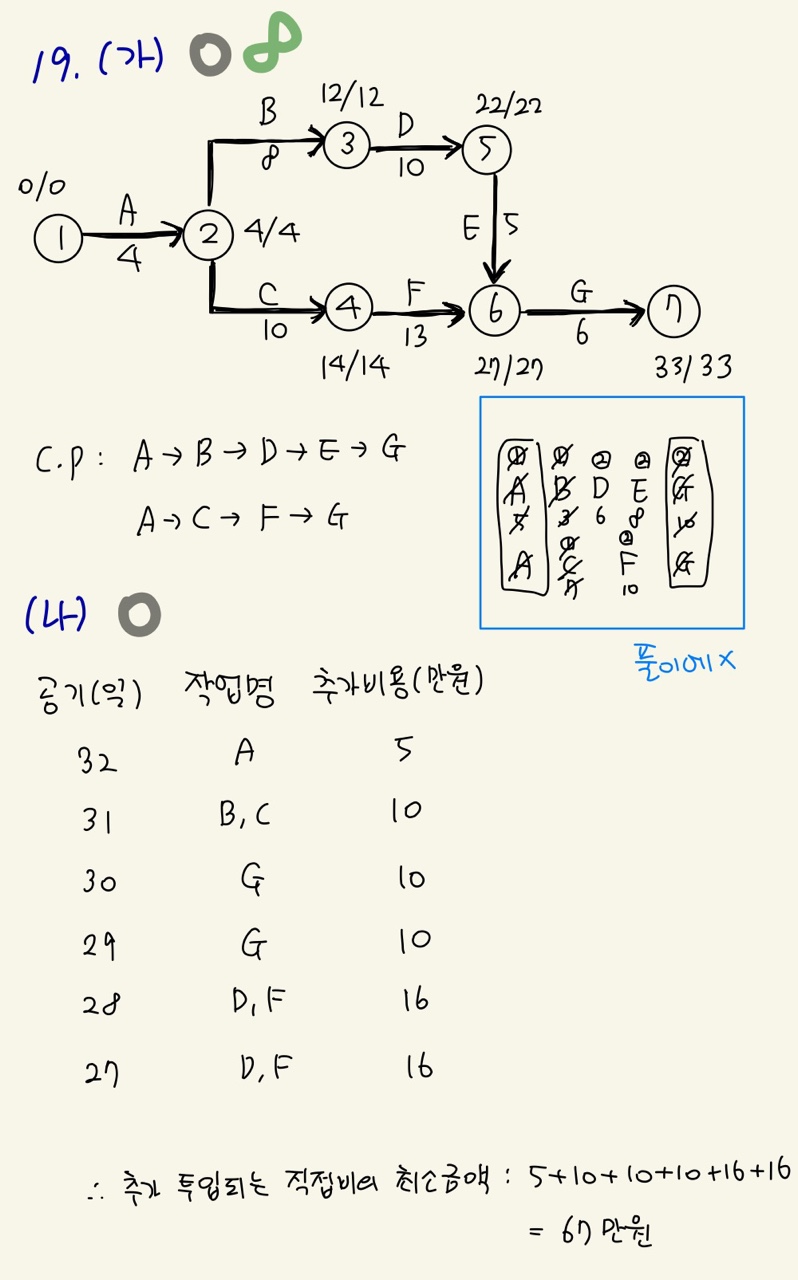 19. (가) O 8
12/12 22/22
B D
3 5
8 10
0/0
A E 5
1 2 4/4
4
C F G
4 6 7
10 13 6
14/14 27/27 33/33
C.P : A → B → D → E → G
A → C → F → G
① ① ② ② ②
A B D E G
5 3 6 8 10
① ②
A C F G
7 10
풀이에 X
(나) O
공기(일) 작업명 추가비용(만원)
32 A 5
31 B, C 10
30 G 10
29 G 10
28 D, F 16
27 D, F 16
∴ 추가 투입되는 직접비의 최소금액 : 5+10+10+10+16+16
= 67 만원